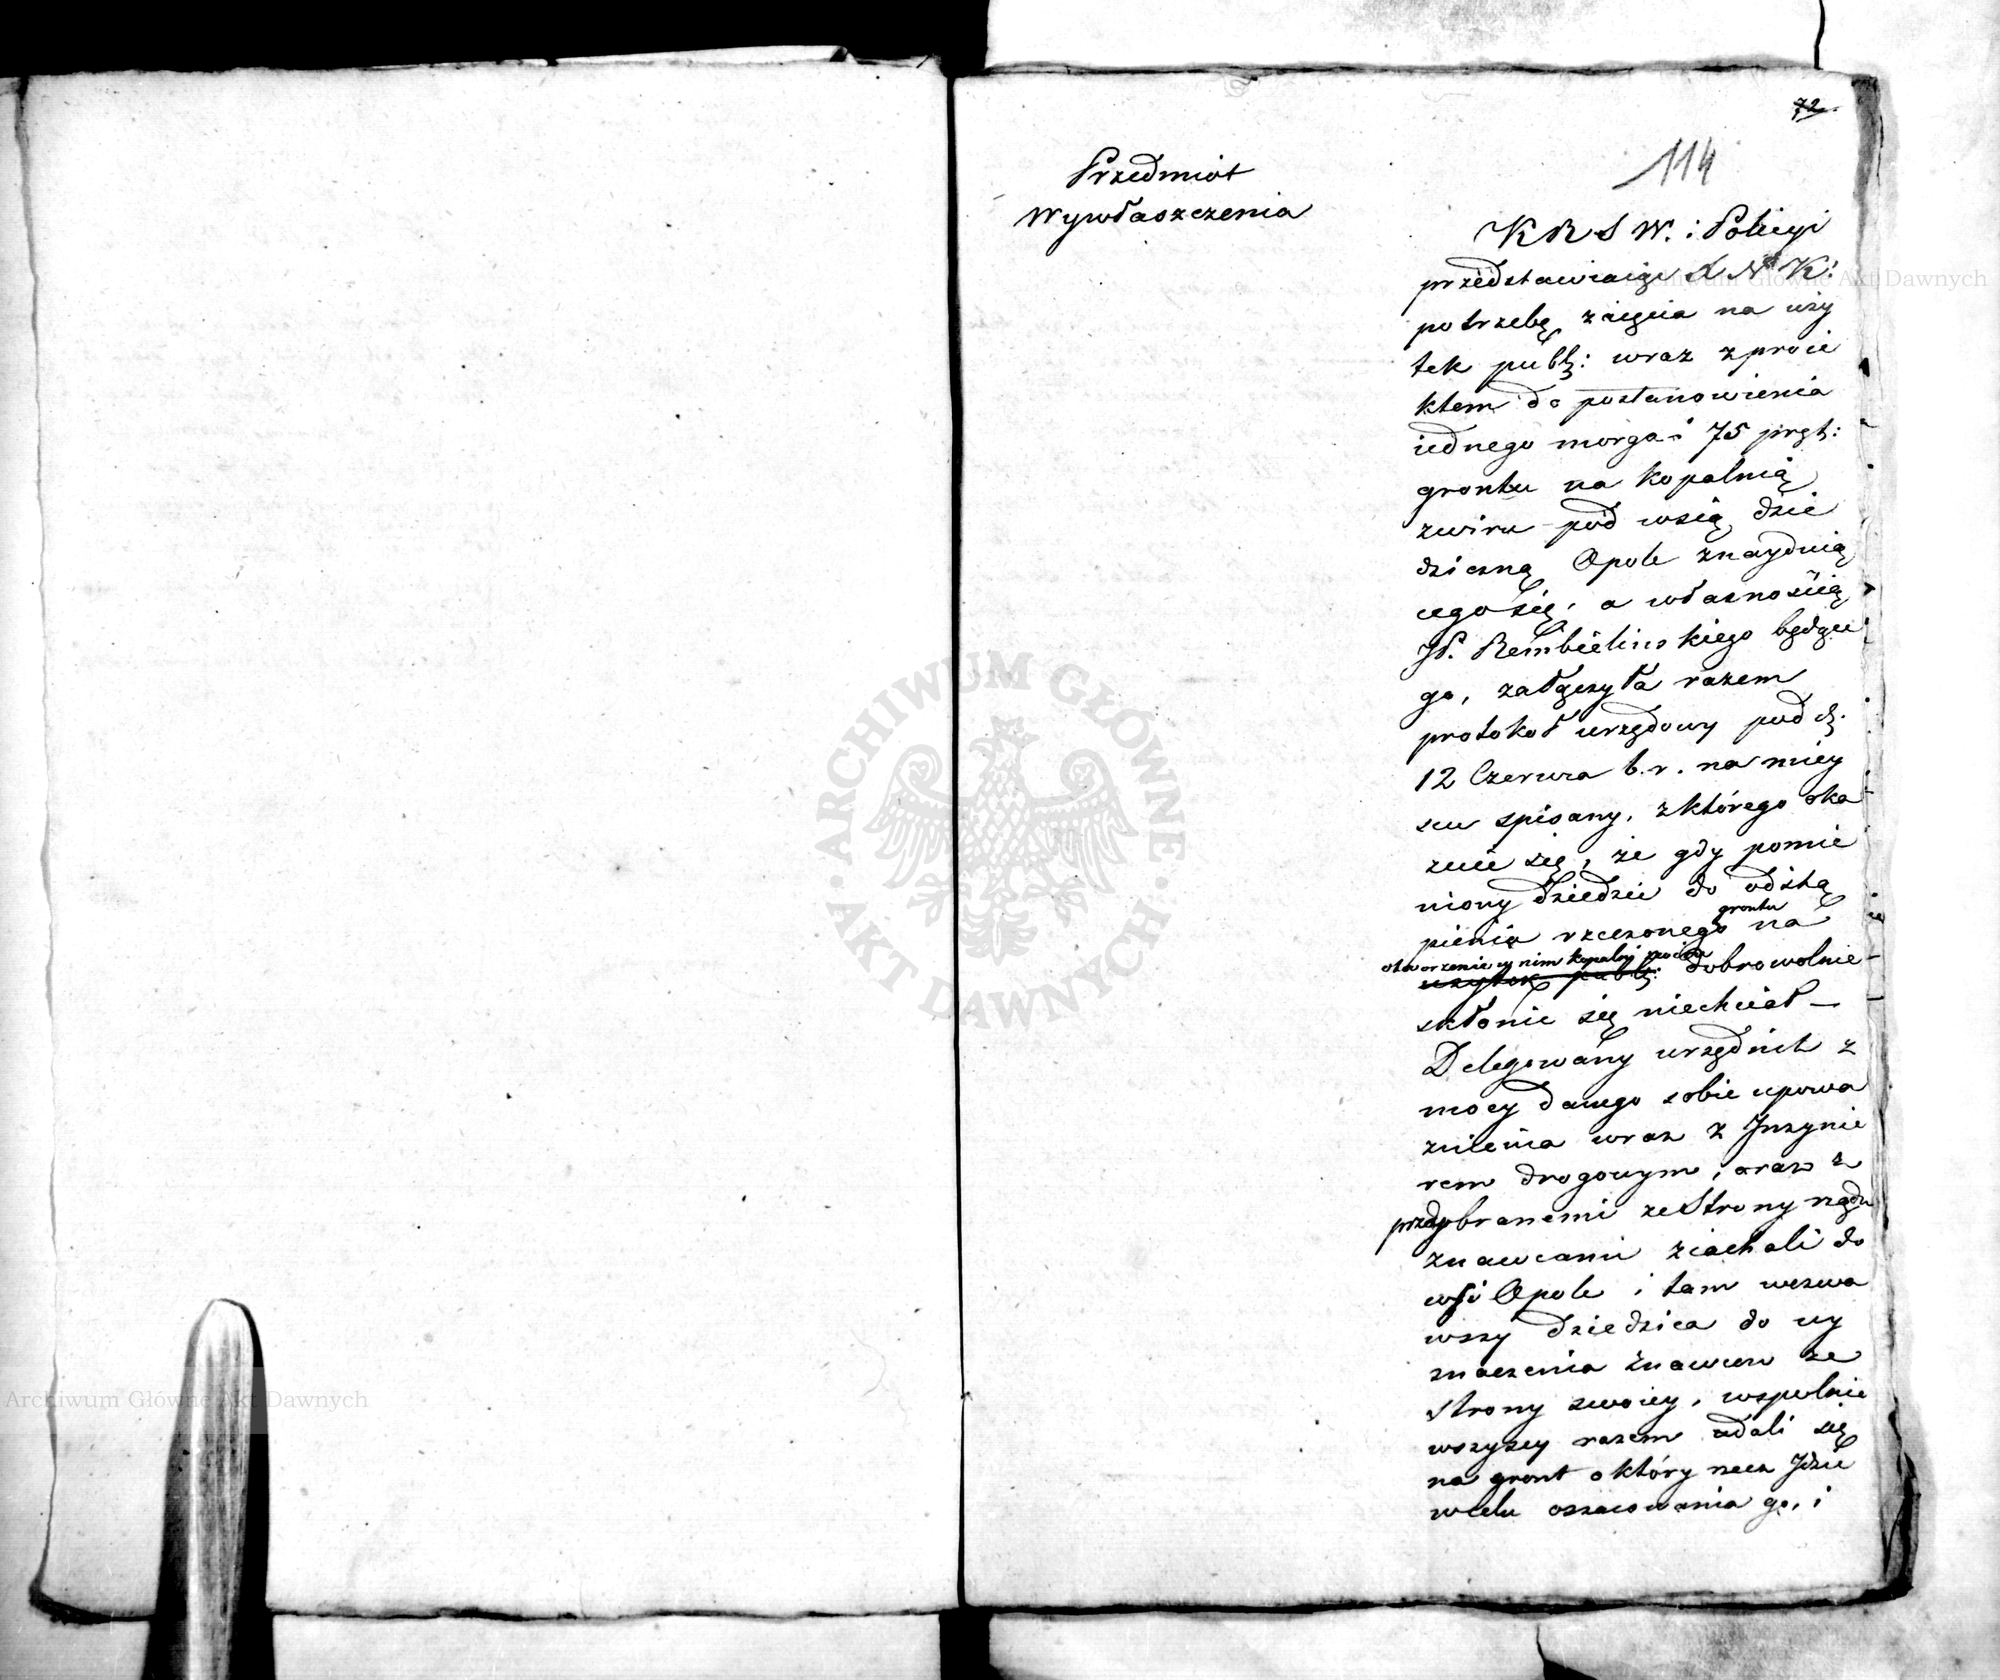 72.
114
Przedmiot
Wywłaszczenia
K R S W. i Policyi
przedstawiaiąc
potrzebę zaięcia na uży
tek publ: wraz z proie
ktem do postanowienia
iednego morga i 75 pręt:
grontu na kopalnią
zwiru pod wsią dzie
dziczną Opole znayduią
cego się, a własnością
JP. Rembielinskiego będące
go, załączyła razem
protokoł urzędowy pod d.
12 Czerwca b. r. na miey
scu spisany, z którego oka
zuie się, że gdy pomie
niony dziedzic do odstą
grontu
pienia rzeczonego na
otworzenie w nim kopalni
użytek publ: dobrowolnie
skłonic się niechciał —
Delegowany urzędnik z
mocy danego sobie upowa
znienia wraz z Jnzynie
rem drogowym, oraz z
przybranemi ze strony rządu
znawcami ziachali do
wsi Opole i tam wezwa
wszy dziedzica do wy
znaczenia znawcow ze
strony swoiey, wspolnie
wszyscy razem udali się
na gront o który rzecz Jdzie
w celu oszacowania go, i
ARCHIWUM GŁÓWNE
AKT DAWNYCH
Archiwum Główne Akt Dawnych
Archiwum Główne Akt Dawnych